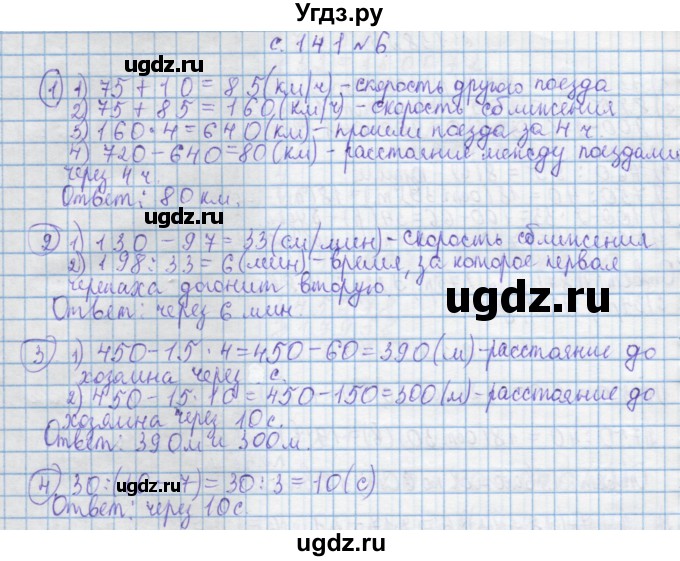 Угдз.ру
с. 141 №6
1 1) 75 + 10 = 85 (км/ч) - скорость другого поезда
2) 75 + 85 = 160 (км/ч) - скорость сближения
3) 160 · 4 = 640 (км) - прошли поезда за 4 ч
4) 720 - 640 = 80 (км) - расстояние между поездами
через 4 ч.
Ответ: 80 км.
2 1) 130 - 97 = 33 (см/мин) - скорость сближения
2) 198 : 33 = 6 (мин) - время, за которое первая
черепаха догонит вторую
Ответ: через 6 мин
3 1) 450 - 15 · 4 = 450 - 60 = 390 (м) - расстояние до
хозяина через с.
2) 450 - 15 · 10 = 450 - 150 = 300 (м) - расстояние до
хозяина через 10 с.
Ответ: 390 м и 300 м.
4 30 : ( 7) = 30 : 3 = 10 (с)
Ответ: через 10 с.
ugdz.ru
ugdz.ru
ugdz.ru
ugdz.ru
ugdz.ru
ugdz.ru
ugdz.ru